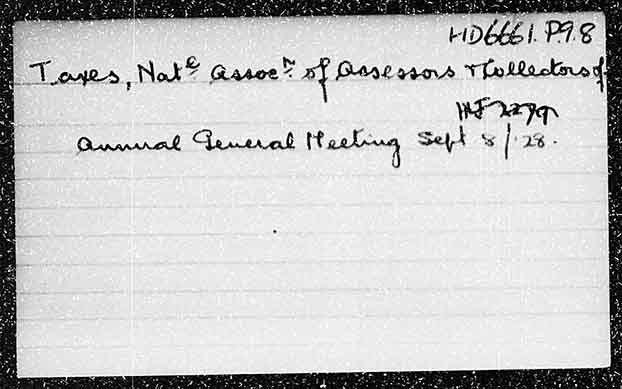 HD6661.P9.8
Taxes, Nat^l Assoc^n of Assessors & Collectors of
Annual General Meeting Sept 8/28.